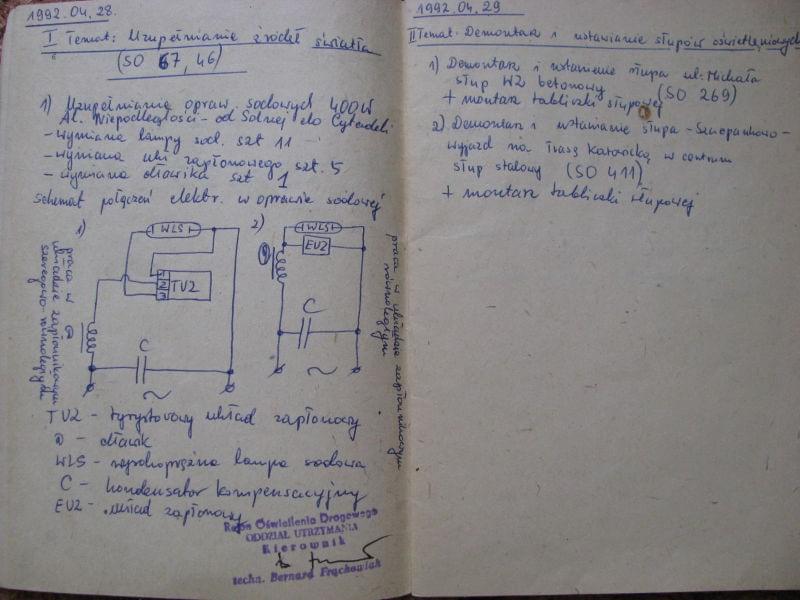 1992.04.28.
I Temat: Uzupełnianie źródeł światła
(SO 67, 46)
1) Uzupełnianie opraw sodowych 400W
Al. Niepodległości - od Solnej do Cytadeli
- wymiana lampy sod. szt 11
- wymiana ukł zapłonowego szt. 5
- wymiana dławika szt 1
Schemat połączeń elektr. w oprawie sodowej
1)
WLS
1
2
3
TUZ
C
praca w
układzie zapłonnikowym
szeregowo-równoległym
2)
WLS
EUZ
C
praca w układzie zapłonnikowym
równoległym
TUZ - tyrystorowy układ zapłonowy
- dławik
WLS - wysokoprężna lampa sodowa
C - kondensator kompensacyjny
EUZ - układ zapłonowy
Rejon Oświetlenia Drogowego
ODDZIAŁ UTRZYMANIA
Kierownik
techn. Bernard Frąchowiak
1992.04.29
II Temat. Demontaż i ustawianie słupów oświetleniowych
1) Demontaż i ustawienie słupa ul. Michała
słup WZ betonowy (SO 269)
+ montaż tabliczki słupowej
2) Demontaż i ustawianie słupa - Szczepankowo -
wyjazd na Trasę Katowicką w centrum
słup stalowy (SO 411)
+ montaż tabliczki słupowej